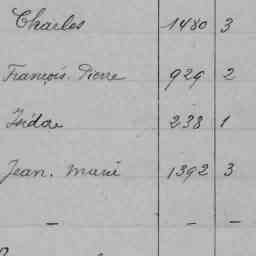 Charles 1480 3
François. Pierre 929 2
Isidore 238 1
Jean. Marie 1392 3
– – –